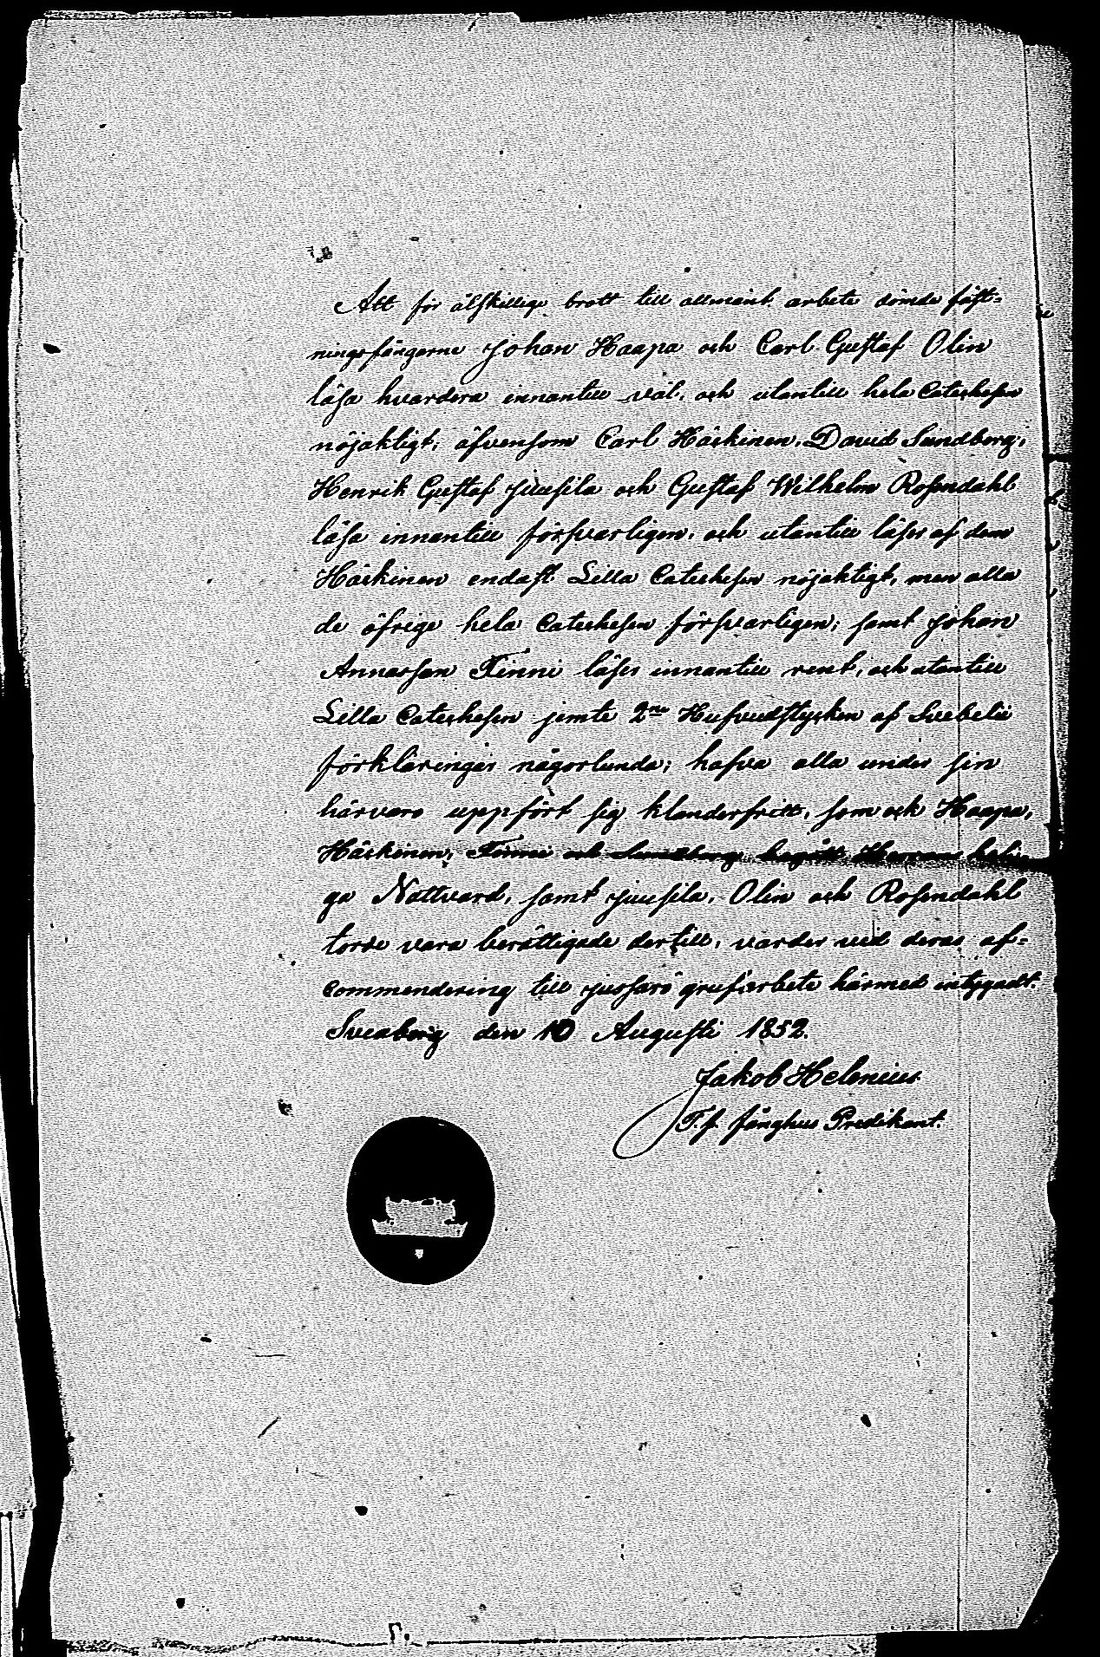 Att för älskillige brott till allmänt arbete dömde fäst-
ningsfångarne Johan Haapa och Carl Gustaf Olin
läsa hvardera innantill väl, och utantill hela Catechesen
nöjaktigt, äfvensom Carl Häckinen, David Sundberg,
Henrik Gustaf Juusila och Gustaf Wilhelm Rosendahl
läsa innantill försvarligen, och utantill läser af dem
Häckinen endast Lilla Catechesen nöjaktigt, men alla
de öfrige hela Catechesen försvarligen; samt Johan
Annasson Finne läser innantill rent, och utantill
Lilla Catechesen jemte 2ne Hufvudstycken af Svebelii
förklaringar någorlunda; hafva alla under sin
härvaro uppfört sig klanderfritt, som ock Haapa,
Häckinen, Finne och Sundberg begått Herrans heli-
ga Nattvard, samt Juusila, Olin och Rosendahl
torde vara berättigade dertill, varder vid deras af-
commendering till Jussarö grufarbete härmed intygadt.
Sveaborg den 10 Augusti 1852.
Jakob Helenius
T.f. fånghus Predikant.